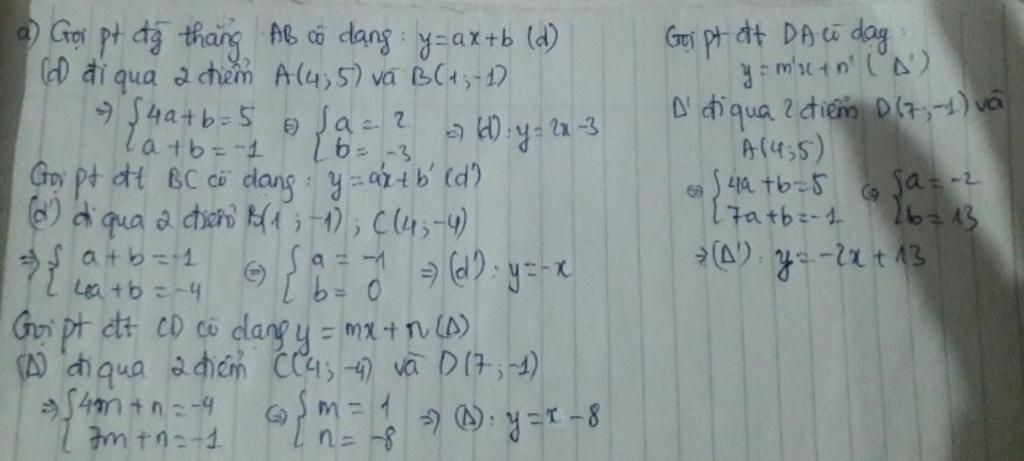 a) Gọi pt đg thẳng AB có dạng: y=ax+b (d)
(d) đi qua 2 điểm A(4;5) và B(1;-1)
=> { 4a+b=5 <=> { a = 2 => (d): y=2x-3
{ a+b=-1 { b = -3
Gọi pt đt BC có dạng: y=a'x+b' (d')
(d') đi qua 2 điểm B(1;-1); C(4;-4)
=> { a+b=-1 <=> { a = -1 => (d'): y=-x
{ 4a+b=-4 { b = 0
Gọi pt đt CD có dạng y=mx+n (Δ)
(Δ) đi qua 2 điểm C(4;-4) và D(7;-1)
=> { 4m+n=-4 <=> { m = 1 => (Δ): y=x-8
{ 7m+n=-1 { n = -8
Gọi pt đt DA có dạg:
y=m'x+n' (Δ')
Δ' đi qua 2 điểm D(7;-1) và
A(4;5)
<=> { 4a+b=5 <=> { a = -2
{ 7a+b=-1 { b = 13
=> (Δ'): y=-2x+13